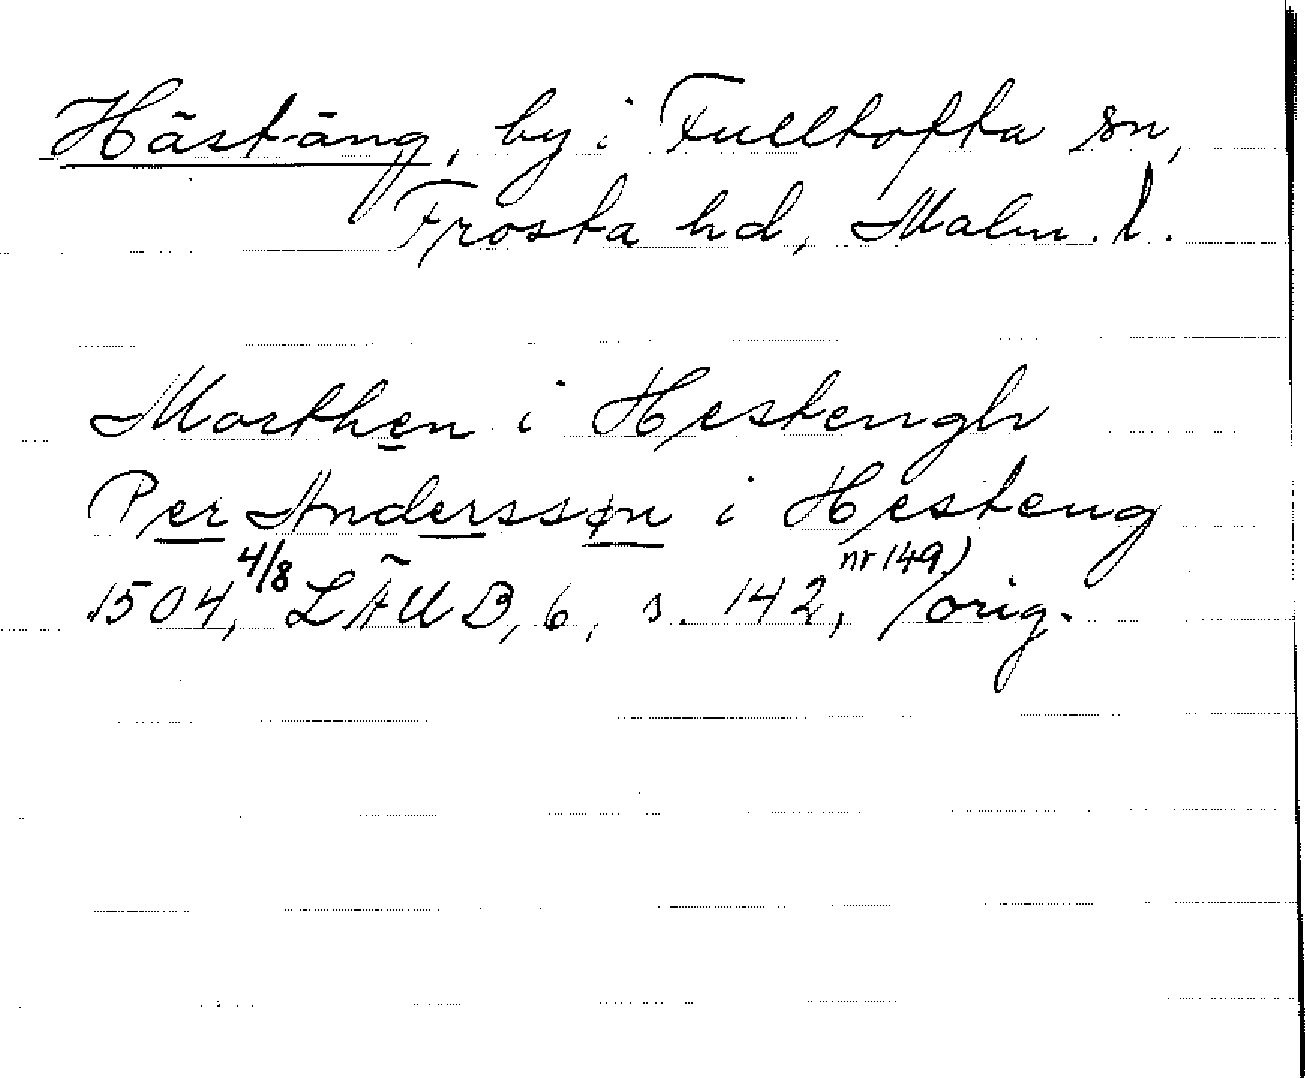 Hästäng, by i Fulltofta sn,
Frosta hd, Malm. l.
Morthen i Hestengh
Per Anderssøn i Hesteng
1504, 4/8 LÄUB, 6, s. 142, nr 149) orig.